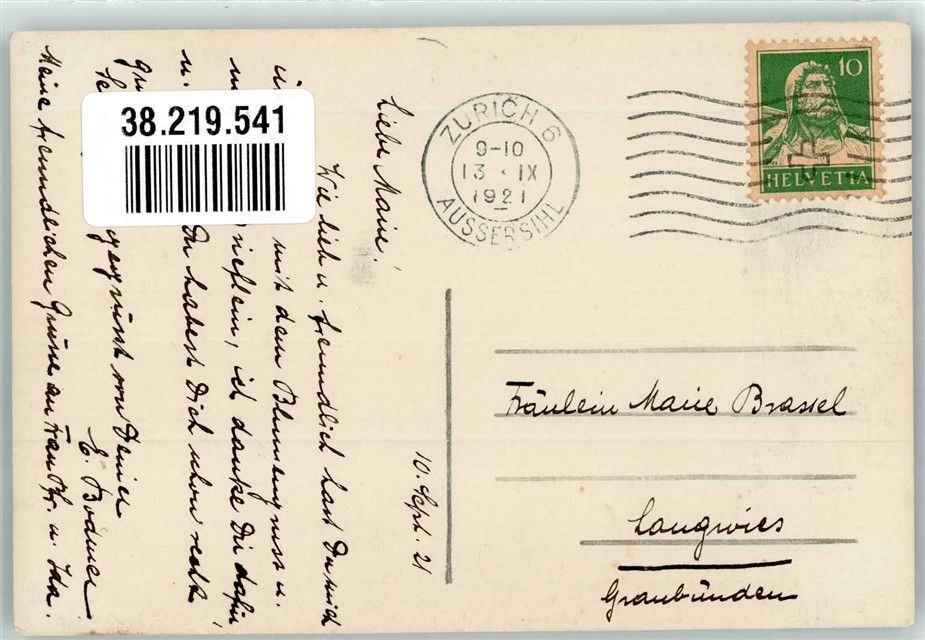 38.219.541
ZÜRICH 6
9-10
13 · IX
1921
AUSSERSIHL
10
HELVETIA
10. Sept. 21
Liebe Marie!
Wie lieb u. freundlich hast Du mich
mit dem Blumengruss u.
ich danke Dir dafür
u. Du habest Dich schon recht
gegrüsst von Deiner
E. Bodmer
Meine freundlichen Grüsse an Frau Pfr. u. Ida.
Fräulein Marie Brassel
Langwies
Graubünden